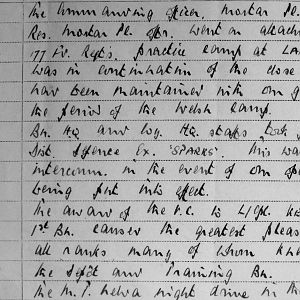 the Commanding Officer, Mortar Pl.
Res. Mortar Pl. Ofr. went on attach
177 Fd. Regts. practice camp at LA
was in continuation of the close
have been maintained with our
the period of the Welsh Camp.
Bn. HQ and Log. HQ. staffs took
Dist. Defence Ex. "SPARKS". This wa
intercomn. in the event of our
being put into effect.
The award of the V.C. to L/Cpl.
1st Bn. causes the greatest pleas
all ranks many of whom kn
the Depôt and Training Bn.
The M.T. held a night drive in th